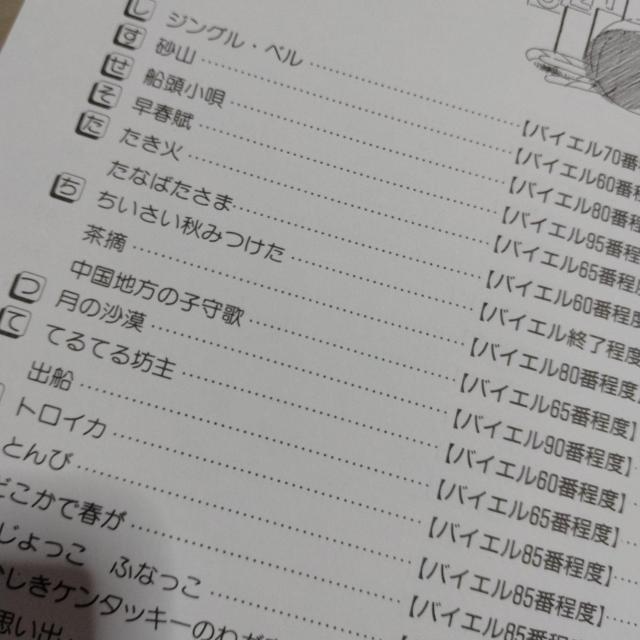 ジングル・ベル 【バイエル70番
す 砂山 【バイエル60番程
せ 船頭小唄 【バイエル80番程
そ 早春賦 【バイエル85番程
た たき火 【バイエル65番程
たなばたさま 【バイエル60番程度
ち ちいさい秋みつけた 【バイエル終了程度
茶摘 【バイエル80番程度
中国地方の子守歌 【バイエル65番程度
つ 月の沙漠 【バイエル90番程度】
て てるてる坊主 【バイエル60番程度】
出船 【バイエル65番程度】
トロイカ 【バイエル85番程度】
とんび 【バイエル65番程度】
どこかで春が 【バイエル65番程度
じょっこ ふなっこ
しきケンタッキーのわが
思い出